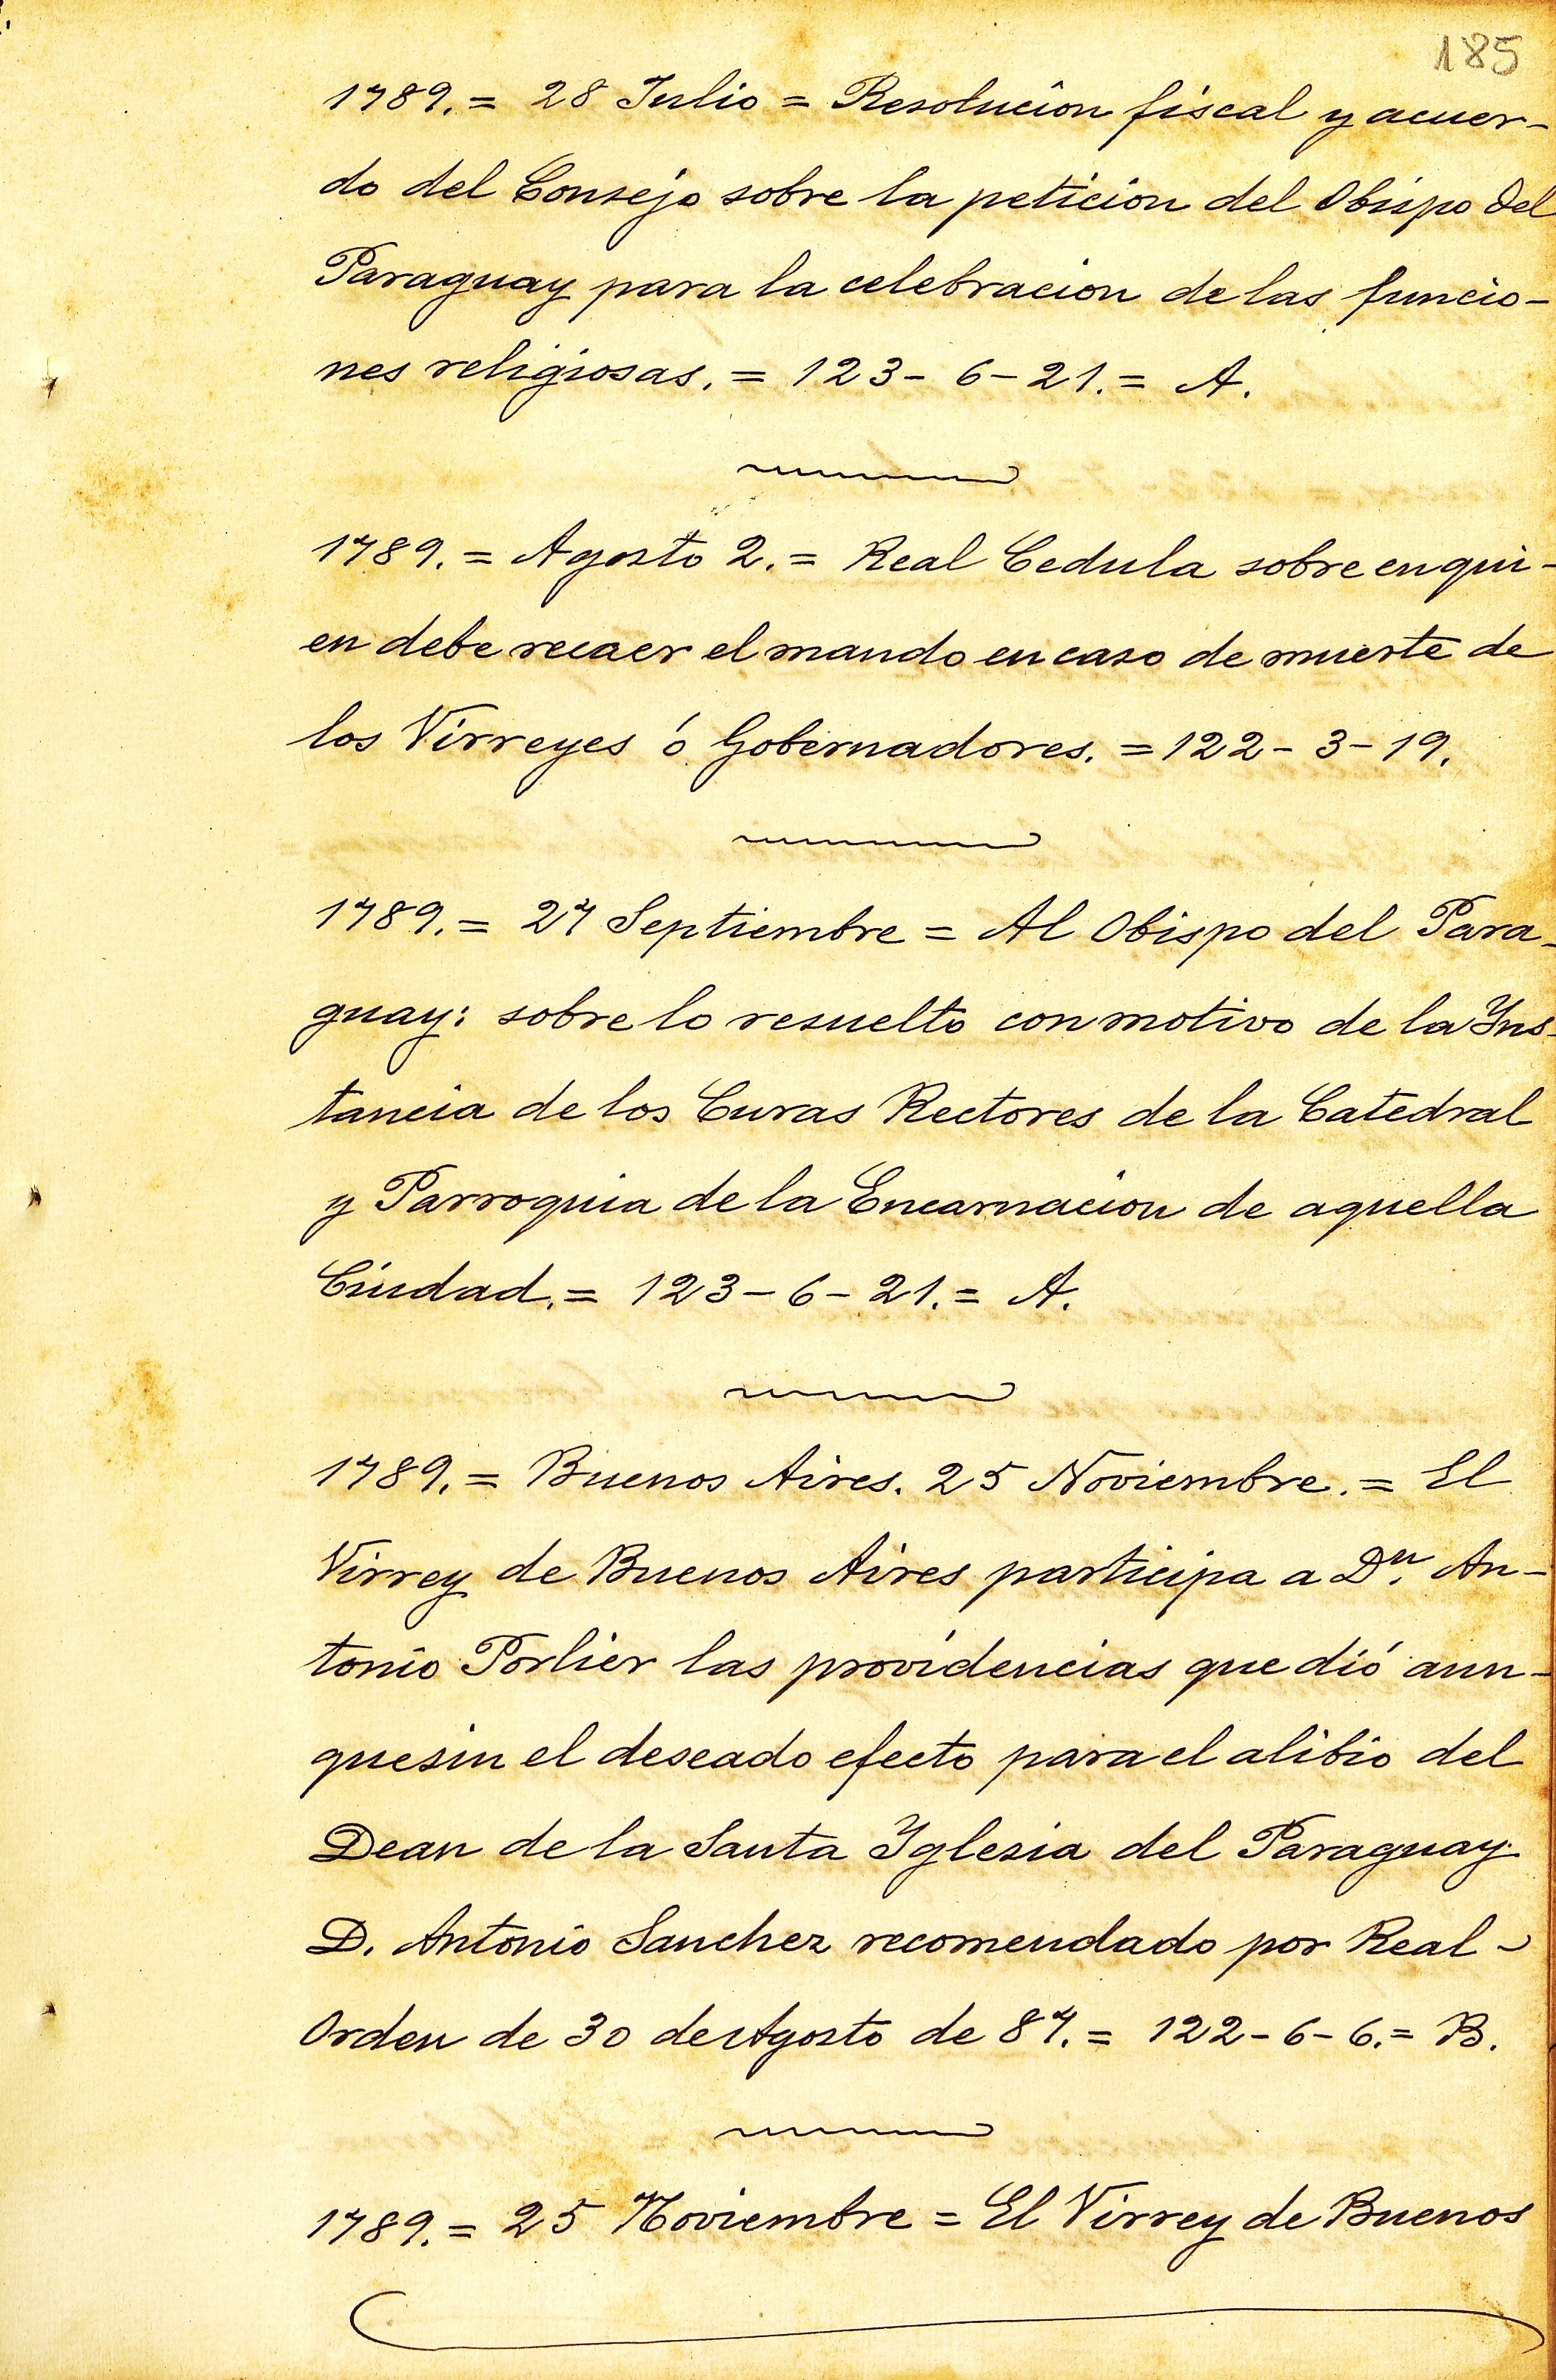 185
1789.= 28 Julio = Resolucion fiscal y acuer-
do del Consejo sobre la peticion del Obispo del
Paraguay para la celebracion de las funcio-
nes religiosas. = 123-6-21.= A.
1789.= Agosto 2.= Real Cedula sobre en qui-
en debe recaer el mando en caso de muerte de
los Virreyes ó Gobernadores. = 122-3-19.
1789.= 27 Septiembre = Al Obispo del Para-
guay: sobre lo resuelto con motivo de la Yns-
tancia de los Curas Rectores de la Catedral
y Parroquia de la Encarnacion de aquella
Ciudad.= 123-6-21.= A.
1789.= Buenos Aires. 25 Noviembre.= El
Virrey de Buenos Aires participa a Dn. An-
tonio Porlier las providencias que dió aun-
que sin el deseado efecto para el alibio del
Dean de la Santa Yglesia del Paraguay
D. Antonio Sanchez recomendado por Real-
Orden de 30 de Agosto de 87.= 122-6-6.= B.
1789.= 25 Noviembre = El Virrey de Buenos